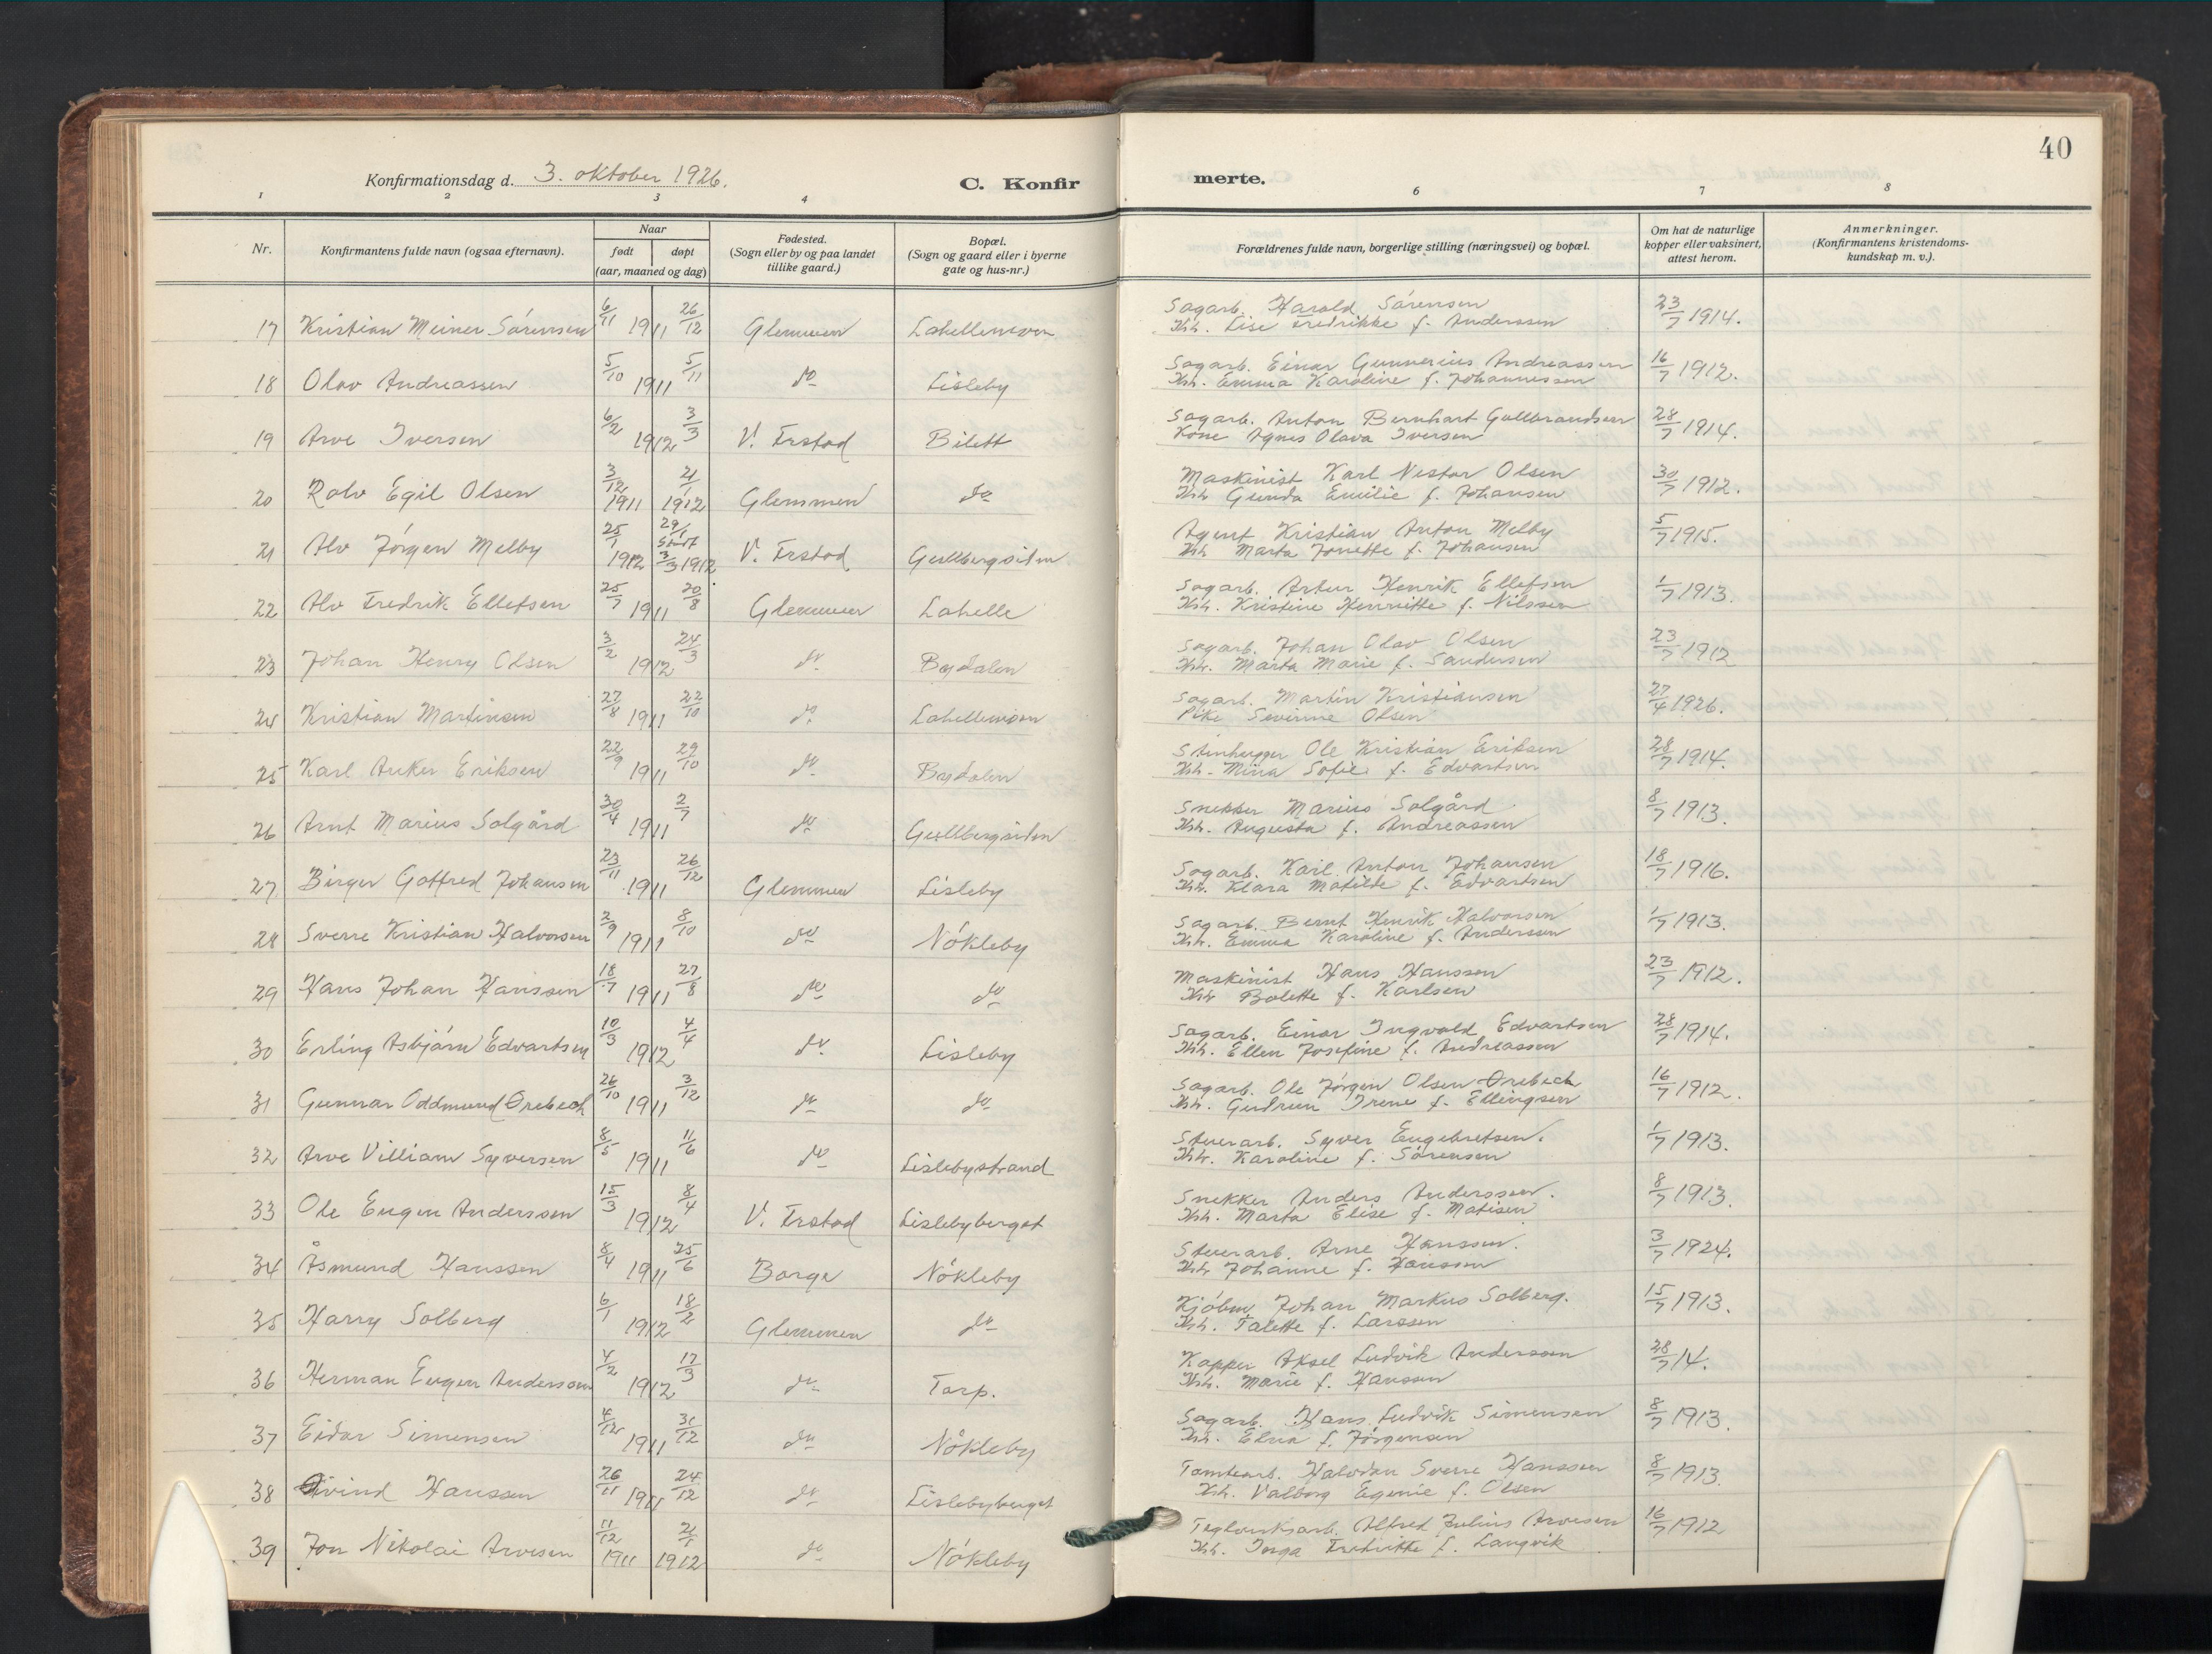 40
Konfirmationsdag d. 3. oktober 1926.
C. Konfirmerte.
1 2 3 4 6 7 8
Nr. Konfirmantens fulde navn (ogsaa efternavn). Naar født døpt (aar, maaned og dag) Fødested. (Sogn eller by og paa landet tillike gaard.) Bopæl. (Sogn og gaard eller i byerne gate og hus-nr.) Forældrenes fulde navn, borgerlige stilling (næringsvei) og bopæl. Om hat de naturlige kopper eller vaksinert, attest herom. Anmerkninger. (Konfirmantens kristendoms-kundskap m. v.).
17 Kristian Meiner Sørensen 6/11 1911 26/12 Glemmen Lahellemoen Sagarb. Harald Sørensen 23/7 1914.
Kh. Lise Fredrikke f. Anderssen
18 Olav Andreassen 5/10 1911 5/11 do Lisleby Sagarb. Einar Gunnerius Andreassen 16/7 1912.
Kh. Emma Karoline f. Johannessen
19 Arve Iversen 6/2 1912 3/3 V. Frstad Bilett Sagarb. Anton Bernhart Gulbrandsen 28/7 1914.
Kone Agnes Olava Iversen
20 Rolv Egil Olsen 3/12 1911 21/1 1912 Glemmen do Maskinist Karl Nestor Olsen 30/7 1912.
Kh Gunda Emilie f. Johansen
21 Alv Jørgen Melby 25/1 1912 29/1 3/3 1912 V. Frstad Gullbergsiden Agent Kristian Anton Melby 5/7 1915.
Kh Marta Jonette f. Johansen
22 Alv Fredrik Ellefsen 25/7 1911 20/8 Glemmen Lahelle Sagarb. Artur Henrik Ellefsen 1/7 1913.
Kh. Kristine Henriette f. Nilssen
23 Johan Henry Olsen 3/2 1912 24/3 do Bydalen Sagarb. Johan Olav Olsen 23/7 1912
Kh. Marta Marie f. Sandersen
24 Kristian Martinsen 27/8 1911 22/10 do Lahellemoen Sagarb. Martin Kristiansen 27/4 1926.
Pike Severine Olsen
25 Karl Anker Eriksen 22/9 1911 29/10 do Bydalen Stenhugger Ole Kristian Eriksen 28/7 1914.
Kh. Mina Sofie f. Edvartsen
26 Arnt Marius Solgård 30/4 1911 2/7 do Gullbergsiden Snekker Marius Solgård 8/7 1913.
Kh. Augusta f. Andreassen
27 Birger Gotfred Johansen 23/11 1911 26/12 Glemmen Lisleby Sagarb. Karl Anton Johansen 18/7 1916.
Kh. Klara Matilde f. Edvartsen
28 Sverre Kristian Halvorsen 2/9 1911 8/10 do Nókleby Sagarb. Bernt Henrik Halvorsen 1/7 1913.
Kh. Emma Karoline f. Anderssen
29 Hans Johan Hanssen 18/7 1911 27/8 do do Maskinist Hans Hanssen 23/7 1912.
Kh Bolette f. Karlsen
30 Erling Asbjørn Edvartsen 10/3 1912 4/4 do Lisleby Sagarb. Einar Ingvald Edvartsen 28/7 1914.
Kh. Ellen Josefine f. Andreassen
31 Gunnar Oddmund Orebech 26/10 1911 3/12 do do Sagarb. Ole Jørgen Olsen Orebech 16/7 1912.
Kh. Gudrun Irene f. Ellingsen
32 Arve Villiam Syversen 8/5 1911 11/6 do Lislebystrand Stuerarb. Syver Engebretsen. 1/7 1913.
Kh. Karoline f. Sørensen
33 Ole Eugen Anderssen 15/3 1912 8/4 V. Frstad Lislebyberget Snekker Anders Anderssen. 8/7 1913.
Kh. Marta Elise f. Matisen
34 Åsmund Hanssen 8/4 1911 25/6 Borge Nókleby Stuerarb. Arne Hanssen. 3/7 1924.
Kh Johanne f. Hanssen
35 Harry Solberg 6/1 1912 18/2 Glemmen do Kjøbm. Johan Markus Solberg. 15/7 1913.
Kh. Talette f. Larssen
36 Herman Eugen Anderssen 4/2 1912 17/3 do Torp. Kapper Aksel Ludvik Anderssen 28/7 14.
Kh. Marie f. Hanssen
37 Eidar Simensen 4/12 1911 31/12 do Nókleby Sagarb. Hans Ludvik Simensen 8/7 1913.
Kh. Elna f. Jørgensen
38 Øivind Hanssen 26/11 1911 24/12 do Lislebyberget Tomtearb. Halvdan Sverre Hanssen 8/7 1913.
Kh. Valborg Egenie f. Olsen
39 Jon Nikolai Arvesen 11/12 1911 21/1 1912 do Nókleby Teglverksarb. Alfred Julius Arvesen 16/7 1912
Kh. Inga Fredrikke f. Langvik